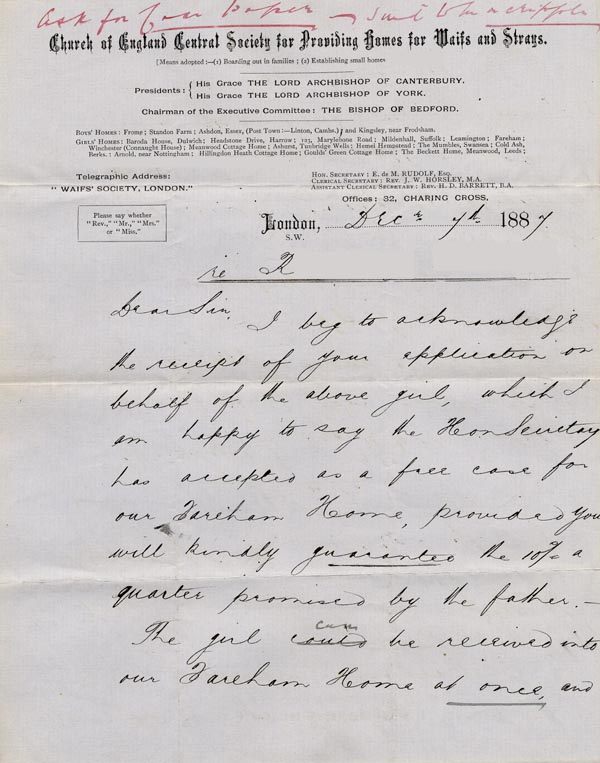 Ask for Case Paper — Said to be a cripple
Church of England Central Society for Providing Homes for Waifs and Strays.
[Means adopted:—(1) Boarding out in families; (2) Establishing small homes
Presidents: { His Grace THE LORD ARCHBISHOP OF CANTERBURY.
His Grace THE LORD ARCHBISHOP OF YORK.
Chairman of the Executive Committee: THE BISHOP OF BEDFORD.
BOYS' HOMES: Frome; Standon Farm; Ashdon, Essex, (Post Town:—Linton, Cambs.); and Kingsley, near Frodsham.
GIRLS' HOMES: Baroda House, Dulwich; Headstone Drive, Harrow; 123, Marylebone Road; Mildenhall, Suffolk; Leamington; Fareham;
Winchester (Connaught House); Meanwood Cottage Home; Ashurst, Tunbridge Wells; Hemel Hempstead; The Mumbles, Swansea; Cold Ash,
Berks.; Arnold, near Nottingham; Hillingdon Heath Cottage Home; Goulds' Green Cottage Home; The Beckett Home, Meanwood, Leeds;
Telegraphic Address:
"WAIFS' SOCIETY, LONDON."
HON. SECRETARY: E. de M. RUDOLF, Esq.
CLERICAL SECRETARY: REV. J. W. HORSLEY, M.A.
ASSISTANT CLERICAL SECRETARY: REV. H. D. BARRETT, B.A.
OFFICES: 32, CHARING CROSS.
Please say whether
"Rev.," "Mr.," "Mrs."
or "Miss."
London, Decr 7th 1887
S.W.
re R
Dear Sir, I beg to acknowledge
the receipt of your application on
behalf of the above girl, which I
am happy to say the Hon Secretary
has accepted as a free case for
our Fareham Home, provided you
will kindly guarantee the 10/- a
quarter promised by the father. —
can
The girl could be received into
our Fareham Home at once, and